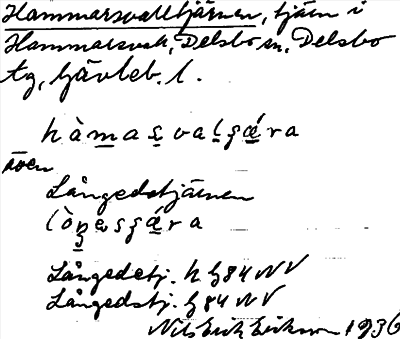 Hammarsvalltjärnen, tjärn i
Hammarsvall, Delsbo sn, Delsbo
tg, Gävleb. l.
hàmasvalʂǽra
även
Långedstjärnen
Långedstj. h G84 NV
Långedstj. G84 NV
Nils Erik Eriksson 1936